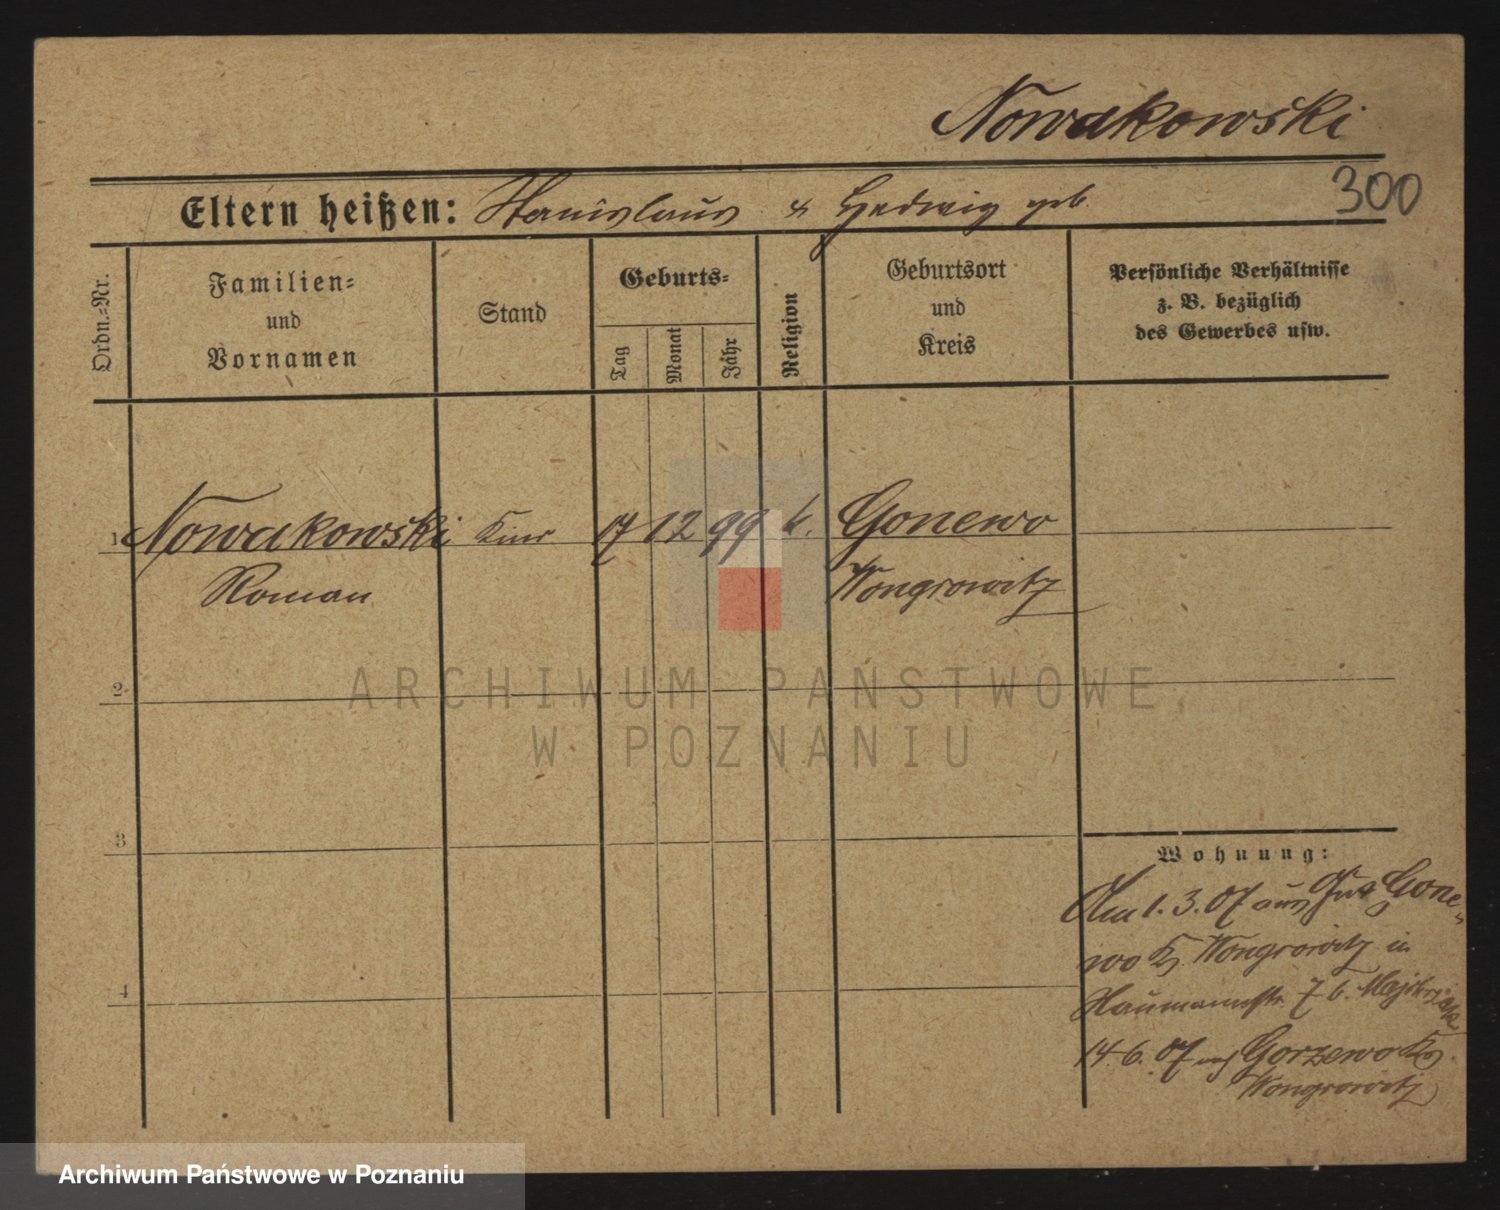 Nowakowski
300
Eltern heißen: Stanislaus & Hedwig geb.
Ordn.-Nr.
Familien-
und
Vornamen
Stand
Geburts-
Tag
Monat
Jahr
Religion
Geburtsort
und
Kreis
Persönliche Verhältnisse
z. B. bezüglich
des Gewerbes usw.
1 Nowakowski Kind 17 12 99 k. Gonewo
Roman Wongrowitz
ARCHIWUM PAŃSTWOWE
W POZNANIU
2
3
4
Wohnung:
Am 1.3.07 aus Gut Gone-
wo Kr. Wongrowitz in
Naumannstr. 7 b.
14.6.07 nach Gorzewo Kr.
Wongrowitz
Archiwum Państwowe w Poznaniu